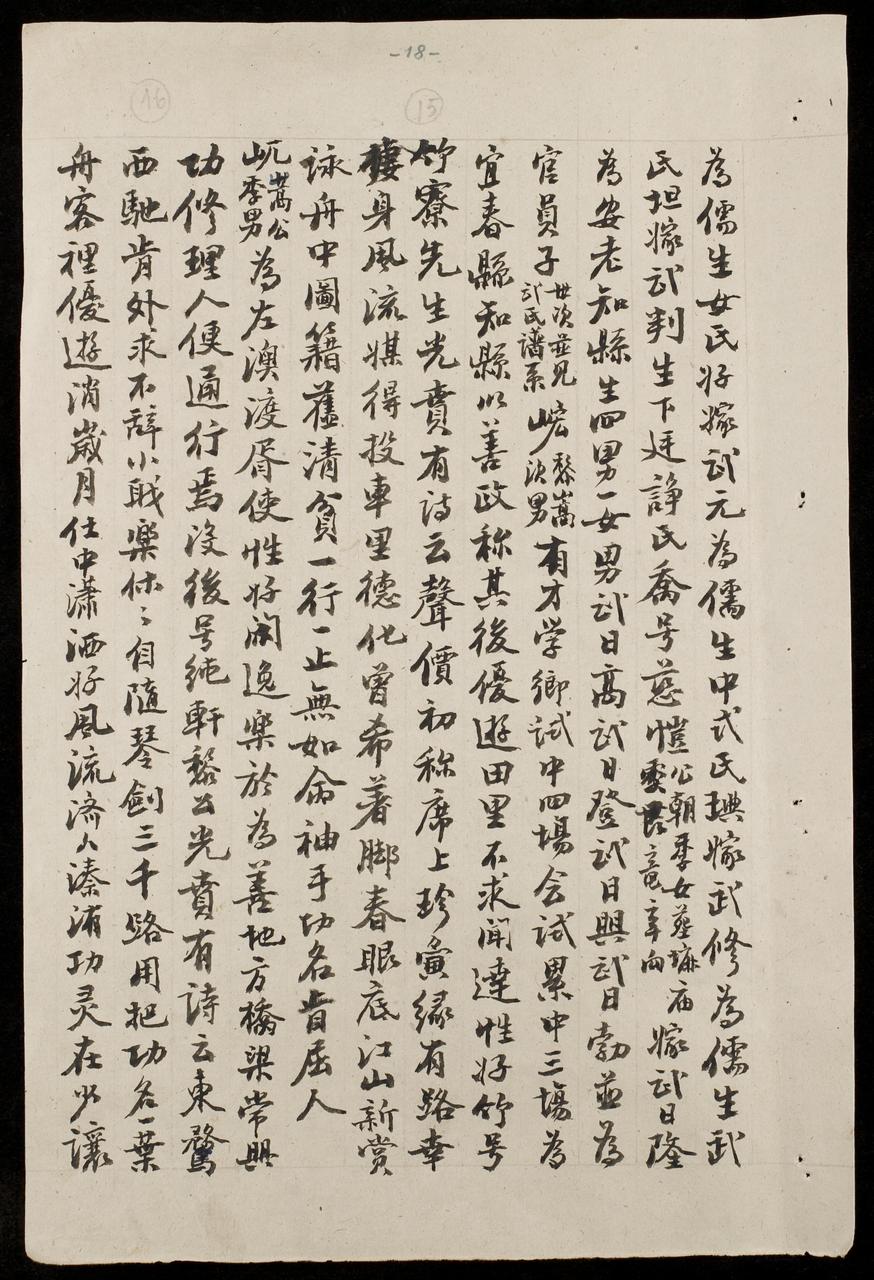 -18-
15
16
為儒生女氏好嫁武元為儒生中式氏琠嫁武修為儒生武
氏坦嫁武判生下廷諍氏喬号慈愷公朝季女墓壚庙嫁武日隆
為安老知縣生四男一女男武日高武日登武日興武日勃並為
官員子世次並見武氏譜系嵥黎嵩次男有才学鄉試中四場会試累中三場為
宜春縣知縣以善政称其後優遊田里不求聞達性好竹号
竹寮先生光賁有诗云聲價初称席上珍寅缘有路幸
棲身風流媒得投車里德化曾希著脚春眼底江山新赏
詠舟中圖籍舊清貧一行一止無如命袖手功名肯屈人
屼嵩公季男為左澳渡胥使性好闲逸樂於為善地方橋梁常興
功修理人便通行焉没後号纯軒黎公光賁有詩云東騖
西馳肯外求不辞小戝楽休〻自随琴劍三千路用把功名一葉
舟客裡優遊消歲月仕中瀟洒好風流済人溱洧功灵在少讓